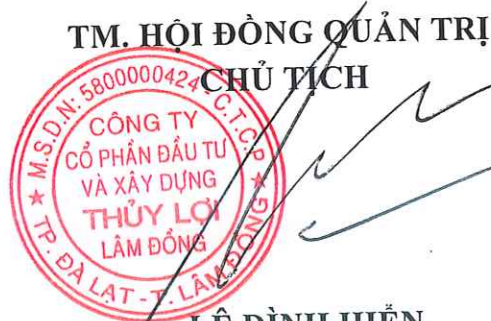 TM. HỘI ĐỒNG QUẢN TRỊ
CHỦ TỊCH
M.S.D.N: 5800000424 - C.T.C.P
CÔNG TY
CỔ PHẦN ĐẦU TƯ
VÀ XÂY DỰNG
THỦY LỢI
LÂM ĐỒNG
★ TP. ĐÀ LẠT - T. LÂM ĐỒNG ★
LÊ ĐÌNH HIỂN